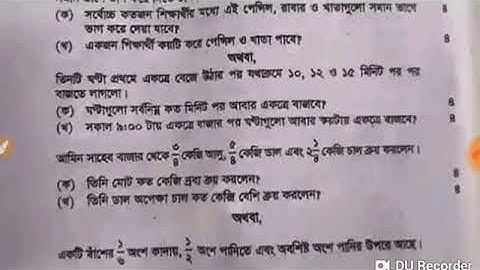 (ক) সর্বোচ্চ কতজন শিক্ষার্থীর মধ্যে এই পেন্সিল, রাবার ও খাতাগুলো সমান ভাগে ৪
ভাগ করে দেয়া যাবে?
(খ) একজন শিক্ষার্থী কয়টি করে পেন্সিল ও খাতা পাবে? ৪
অথবা,
তিনটি ঘণ্টা প্রথমে একত্রে বেজে উঠার পর যথাক্রমে ১০, ১২ ও ১৫ মিনিট পর পর
বাজতে লাগলো।
(ক) ঘণ্টাগুলো সর্বনিম্ন কত মিনিট পর আবার একত্রে বাজবে? ৪
(খ) সকাল ৯:০০ টায় একত্রে বাজার পর ঘণ্টাগুলো আবার কয়টায় একত্রে বাজবে? ৪
আমিন সাহেব বাজার থেকে কেজি আলু, ৫/৪ কেজি ডাল এবং ২ ১/৪ কেজি চাল ক্রয় করলেন।
(ক) তিনি মোট কত কেজি দ্রব্য ক্রয় করলেন? ৪
(খ) তিনি ডাল অপেক্ষা চাল কত কেজি বেশি ক্রয় করলেন? ৪
অথবা,
একটি বাঁশের ১/৬ অংশ কাদায়, ১/২ অংশ পানিতে এবং অবশিষ্ট অংশ পানির উপরে আছে।
DU Recorder